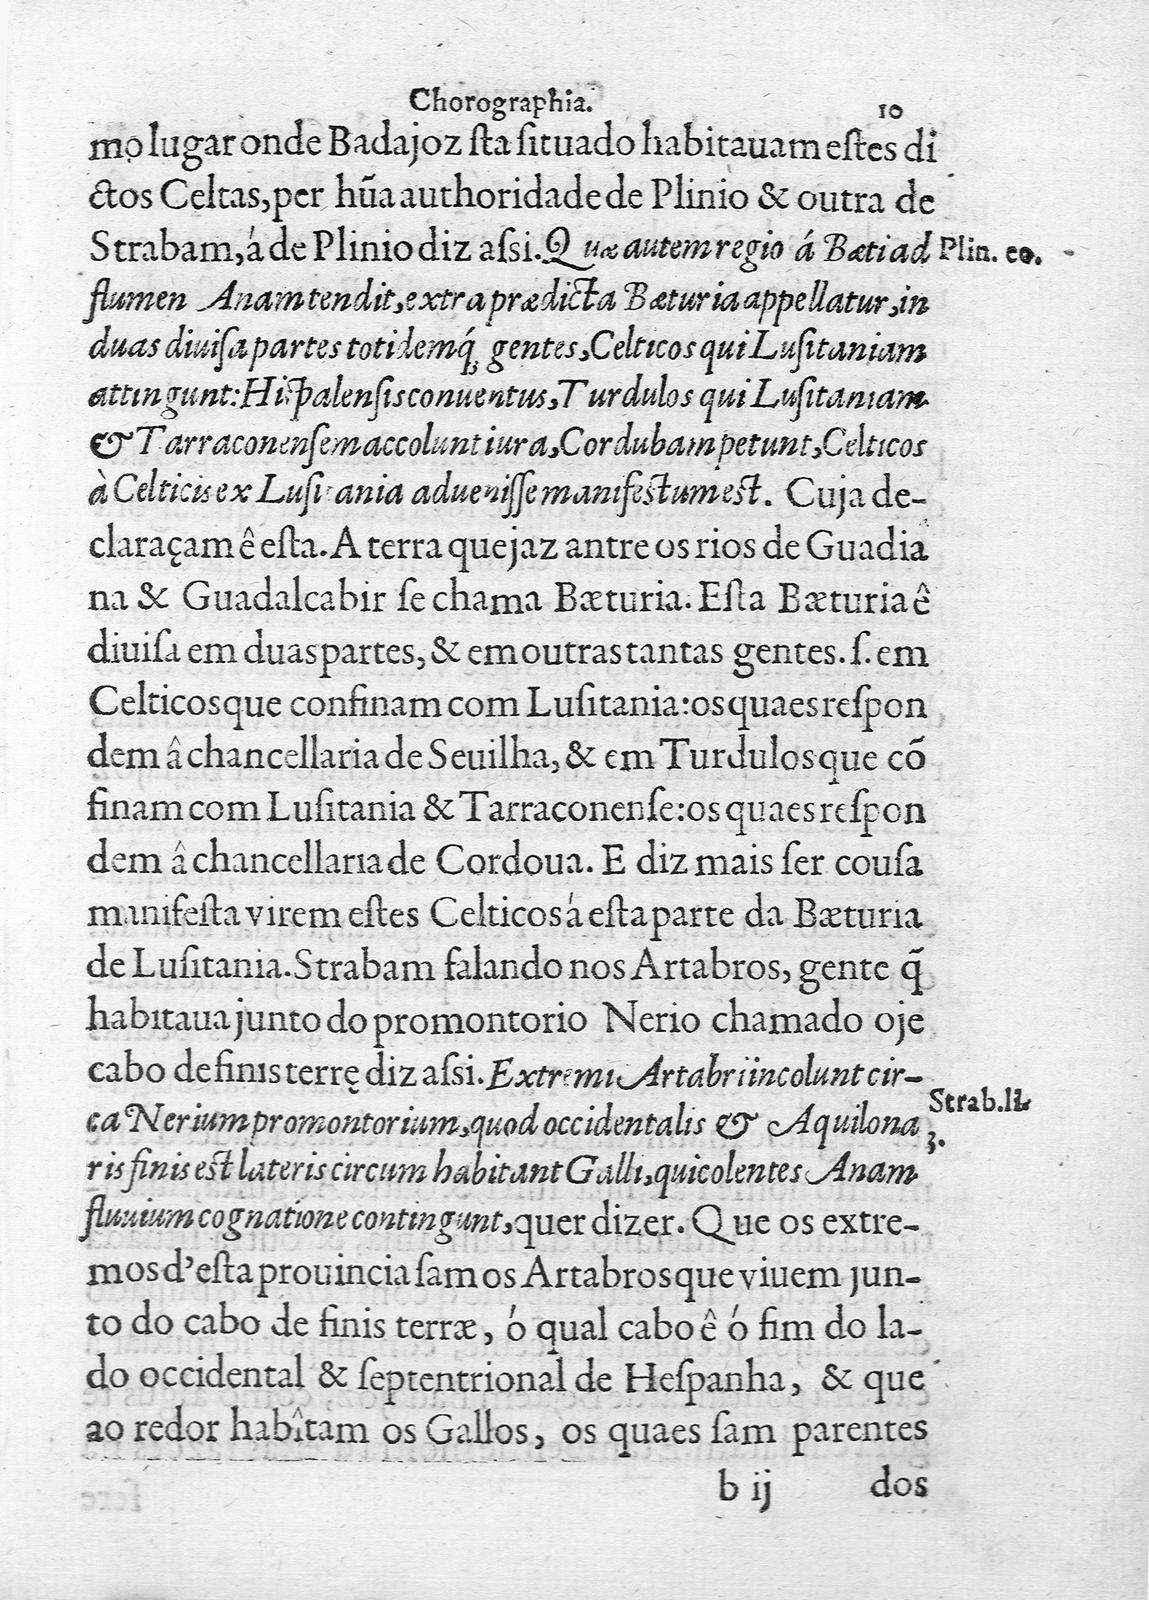 Chorographia. 10
mo lugar onde Badajoz ſta ſituado habitauam eſtes di
ctos Celtas, per hũa authoridade de Plinio & outra de
Strabam, á de Plinio diz aſsi. Quæ autem regio á Bæti ad
Plin. eo.
flumen Anam tendit, extra prædicta Bæturia appellatur, in
duas diuiſa partes totidemq́; gentes, Celticos qui Luſitaniam
attingunt: Hiſpalenſis conuentus, Turdulos qui Luſitaniam
& Tarraconenſem accolunt iura, Cordubam petunt, Celticos
à Celticis ex Luſitania adueniſſe manifeſtum eſt. Cuja de-
claraçam ê eſta. A terra que jaz antre os rios de Guadia
na & Guadalcabir ſe chama Bæturia. Eſta Bæturia ê
diuiſa em duas partes, & em outras tantas gentes. ſ. em
Celticos que confinam com Luſitania: os quaes reſpon
dem â chancellaria de Seuilha, & em Turdulos que cõ
finam com Luſitania & Tarraconenſe: os quaes reſpon
dem â chancellaria de Cordoua. E diz mais ſer couſa
manifeſta virem eſtes Celticos á eſta parte da Bæturia
de Luſitania. Strabam falando nos Artabros, gente q̃
habitaua junto do promontorio Nerio chamado oje
cabo de finis terrę diz aſsi. Extremi Artabri incolunt cir-
Strab. li.
ca Nerium promontorium, quod occidentalis & Aquilona
3.
ris finis eſt lateris circum habitant Galli, qui colentes Anam
fluuium cognatione contingunt, quer dizer. Que os extre-
mos d'eſta prouincia ſam os Artabros que viuem jun-
to do cabo de finis terræ, ó qual cabo ê ó fim do la-
do occidental & ſeptentrional de Heſpanha, & que
ao redor habîtam os Gallos, os quaes ſam parentes
b ij dos